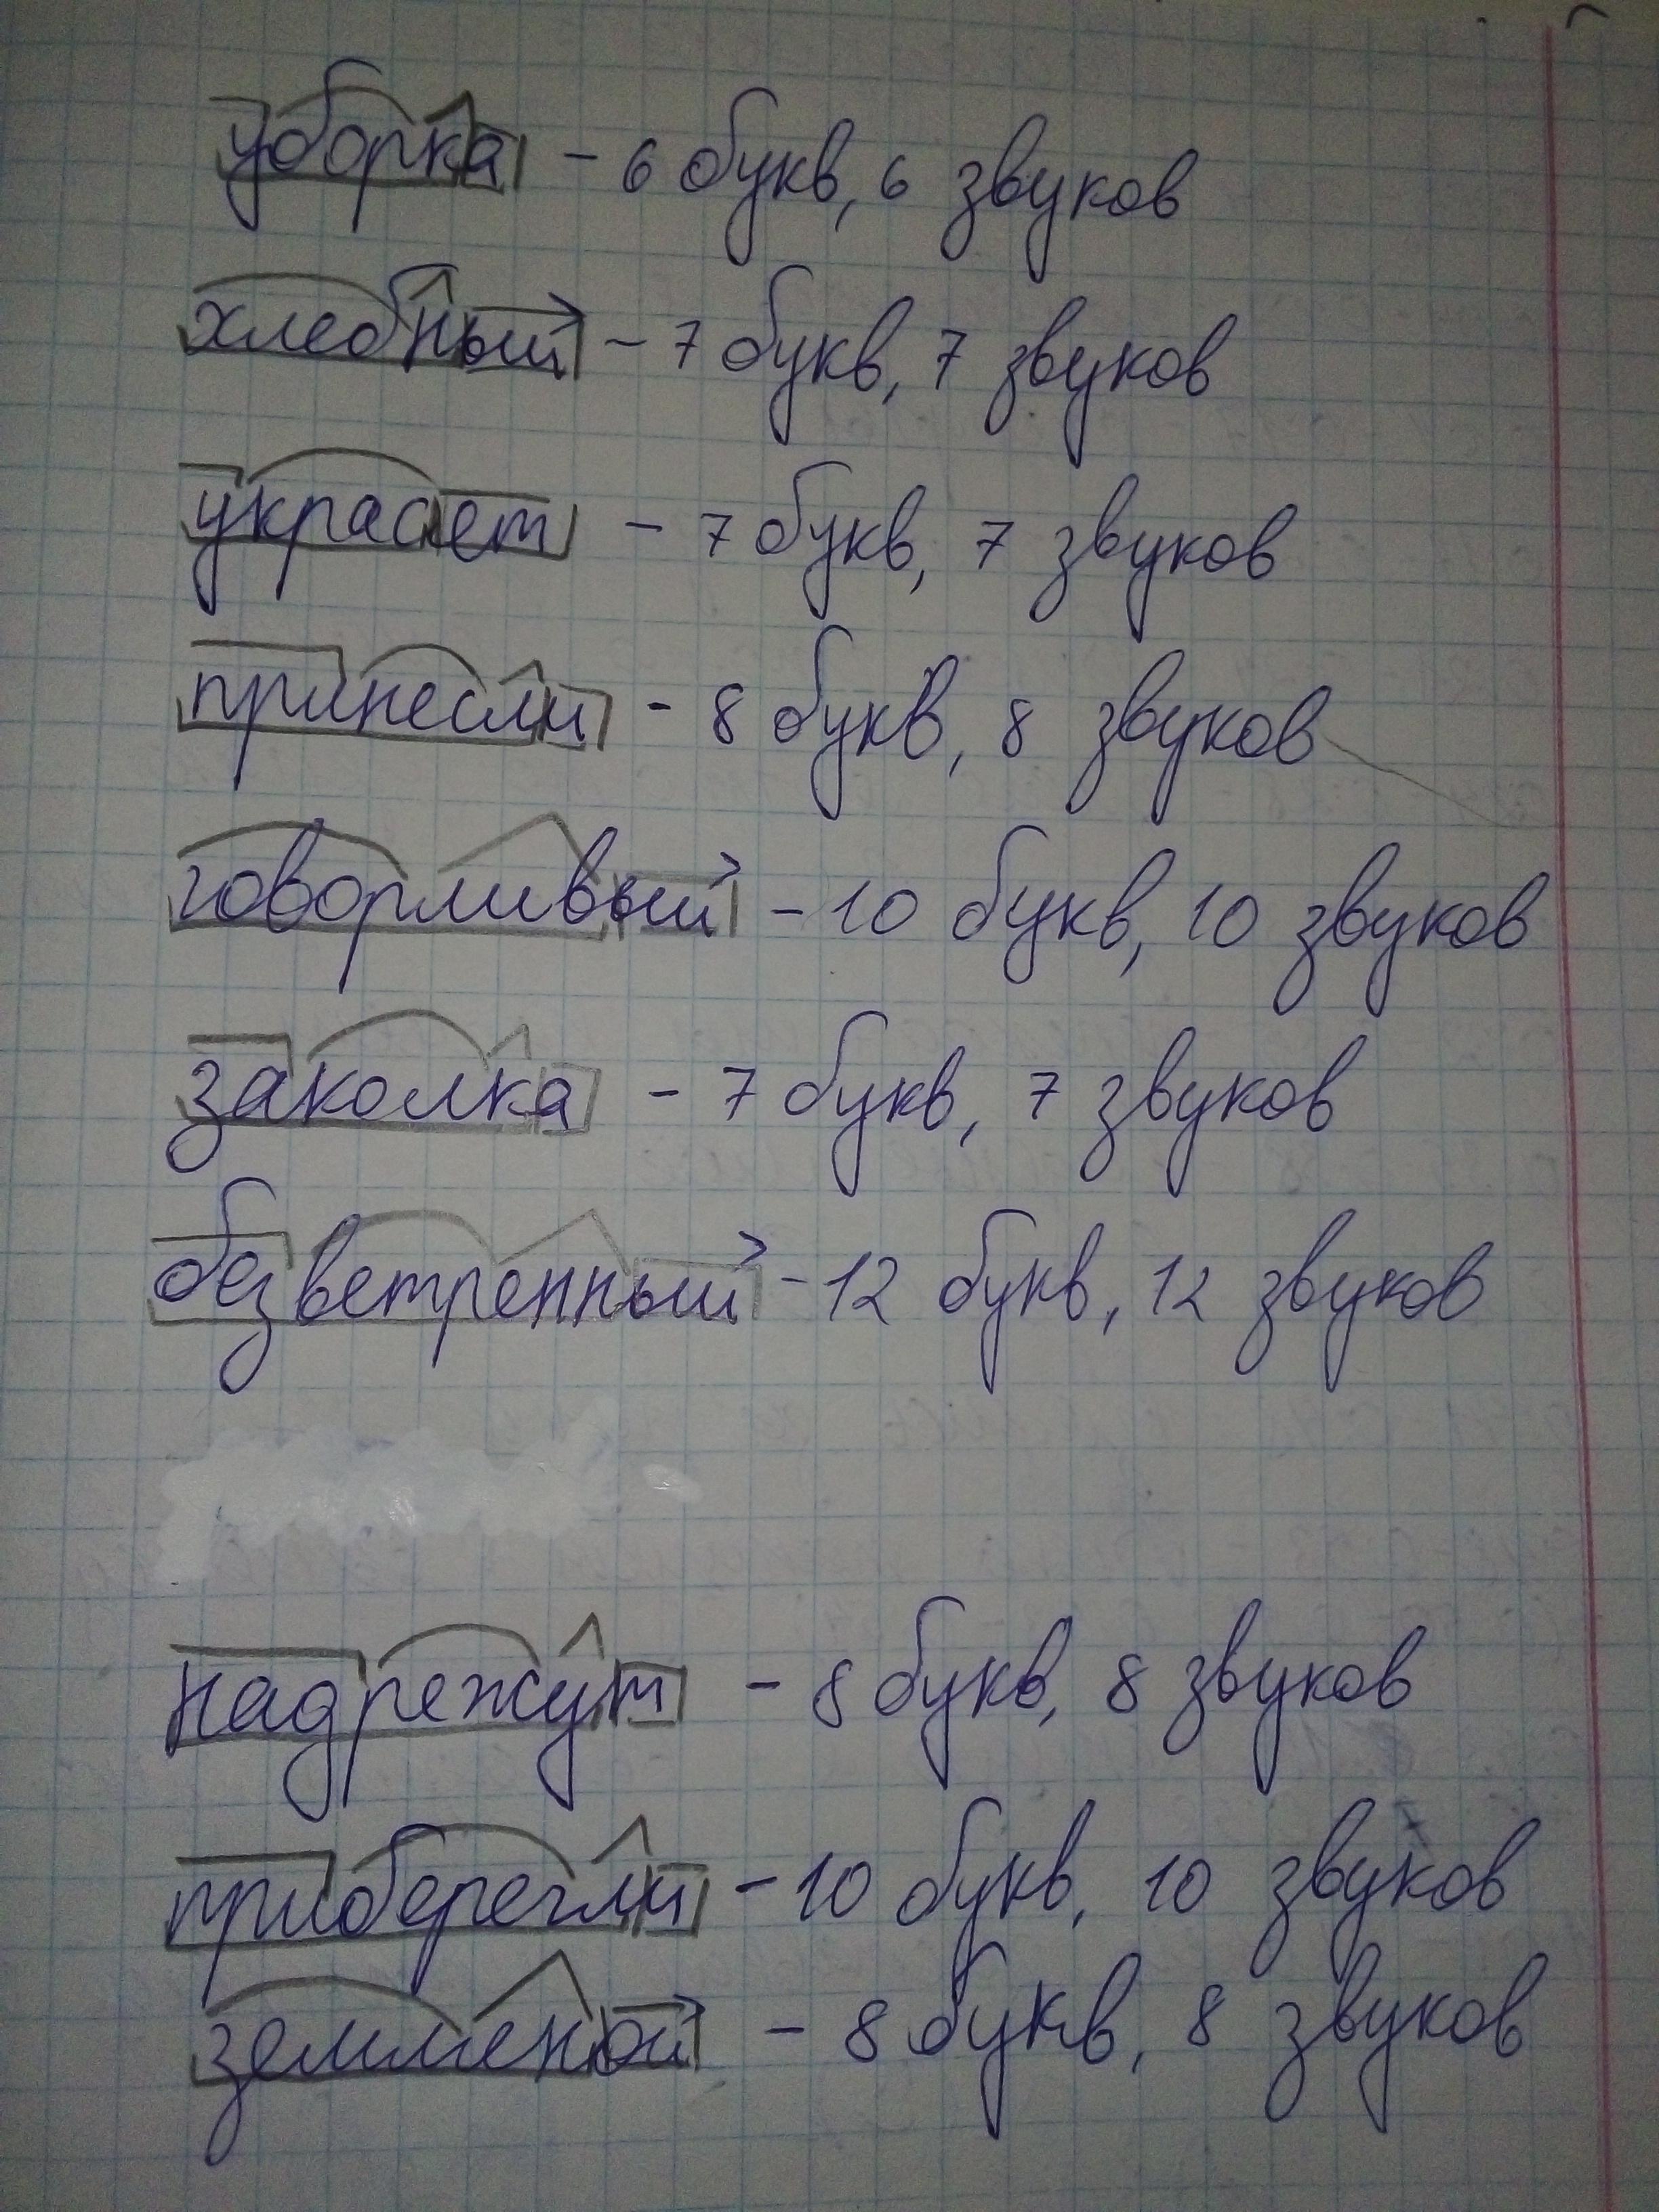 уборка - 6 букв, 6 звуков
хлебный - 7 букв, 7 звуков
украсет - 7 букв, 7 звуков
принесли - 8 букв, 8 звуков
говорливый - 10 букв, 10 звуков
заколка - 7 букв, 7 звуков
безветренный - 12 букв, 12 звуков
надрежут - 8 букв, 8 звуков
приберегли - 10 букв, 10 звуков
земленой - 8 букв, 8 звуков